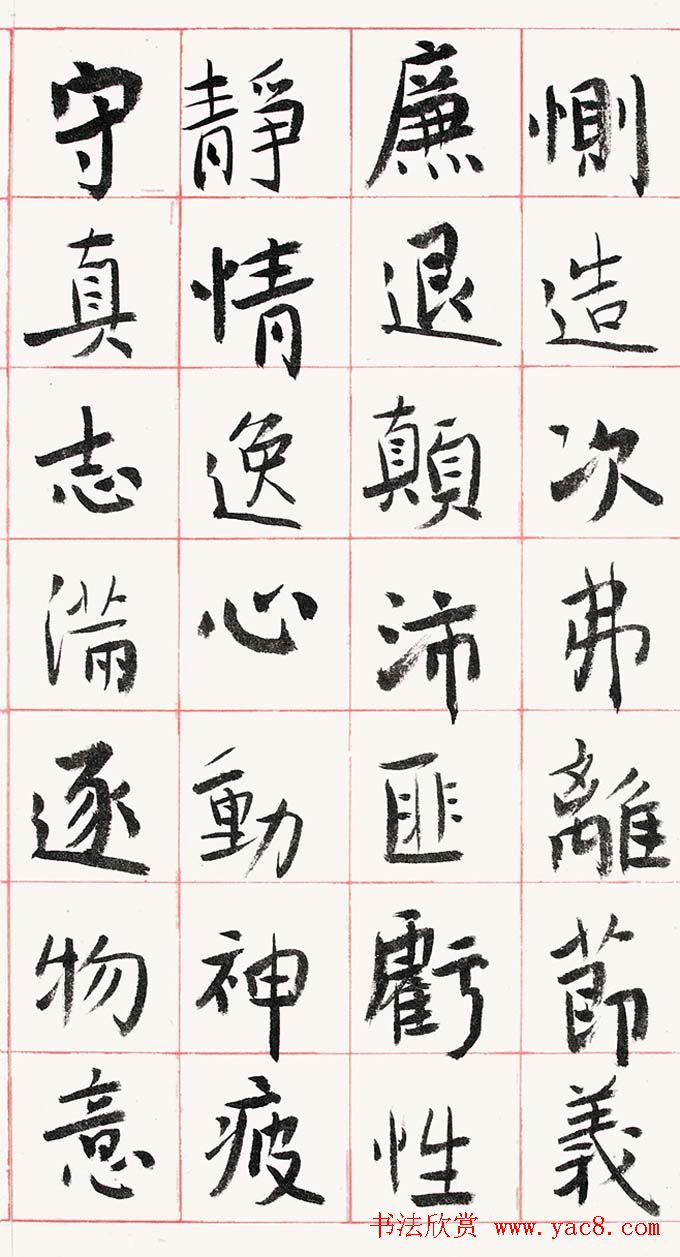 惻造次弗離節義
廉退顛沛匪虧性
靜情逸心動神疲
守真志滿逐物意
书法欣赏 www.yac8.com